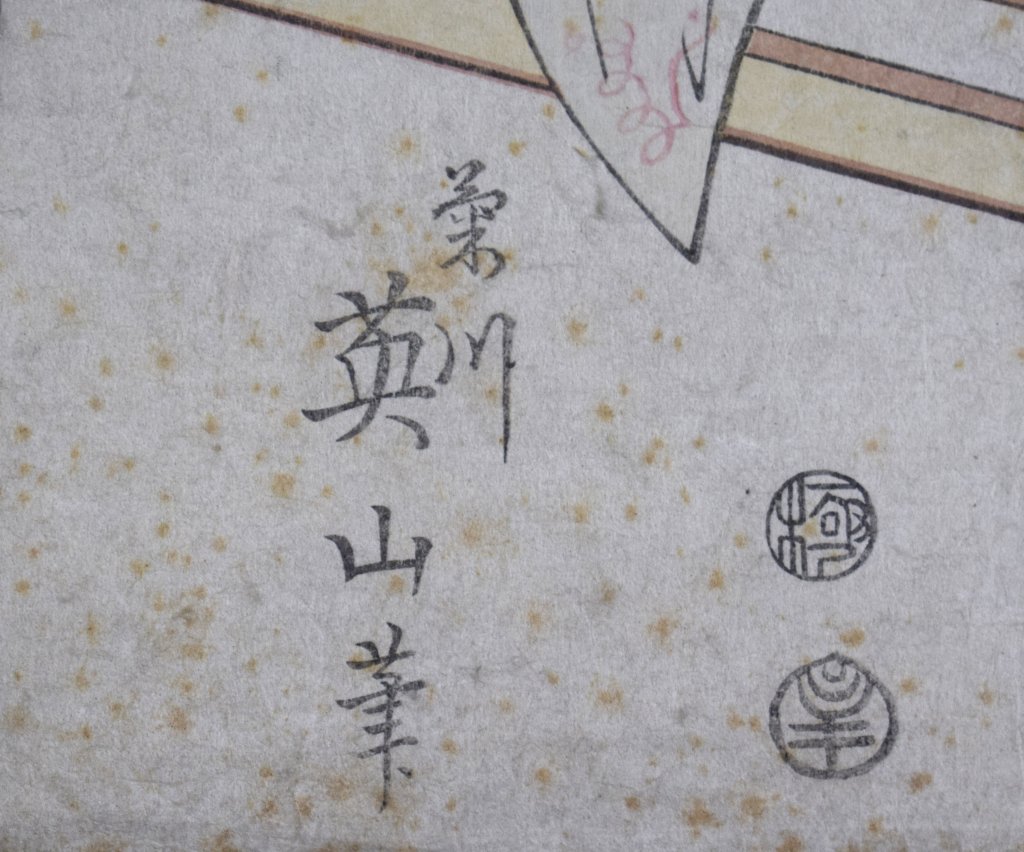 菊川
英山筆
極